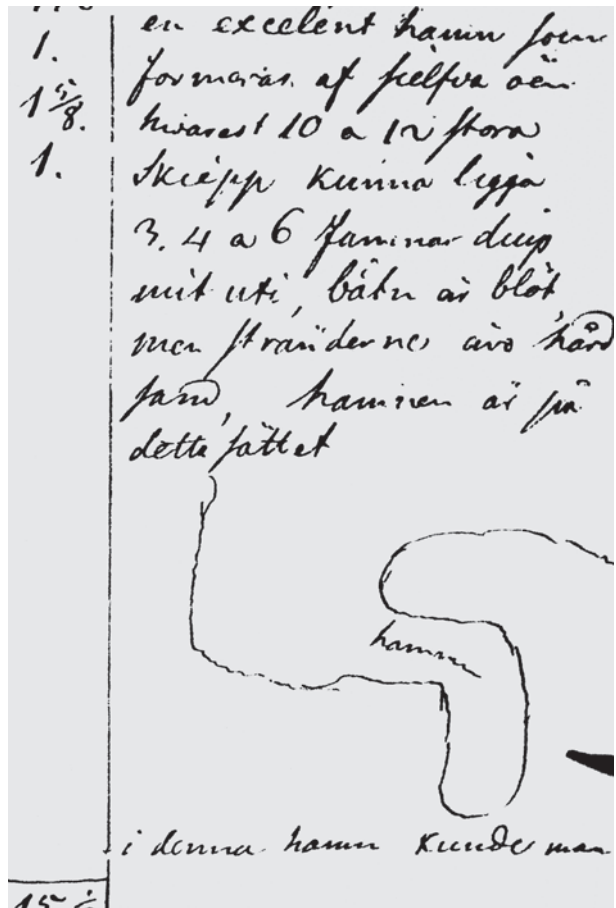 1.
1 5/8.
1.
en excelent hamn som
formeras af sielfva öen
hwarest 10 a 12 stora
Skiepp kunna ligga
3. 4 a 6 famnar diup
mit uti, båtn är blöt
men strändernes äro hård
sand, hamnen är på
detta sättet
hamn
i denna hamn kunde man
15